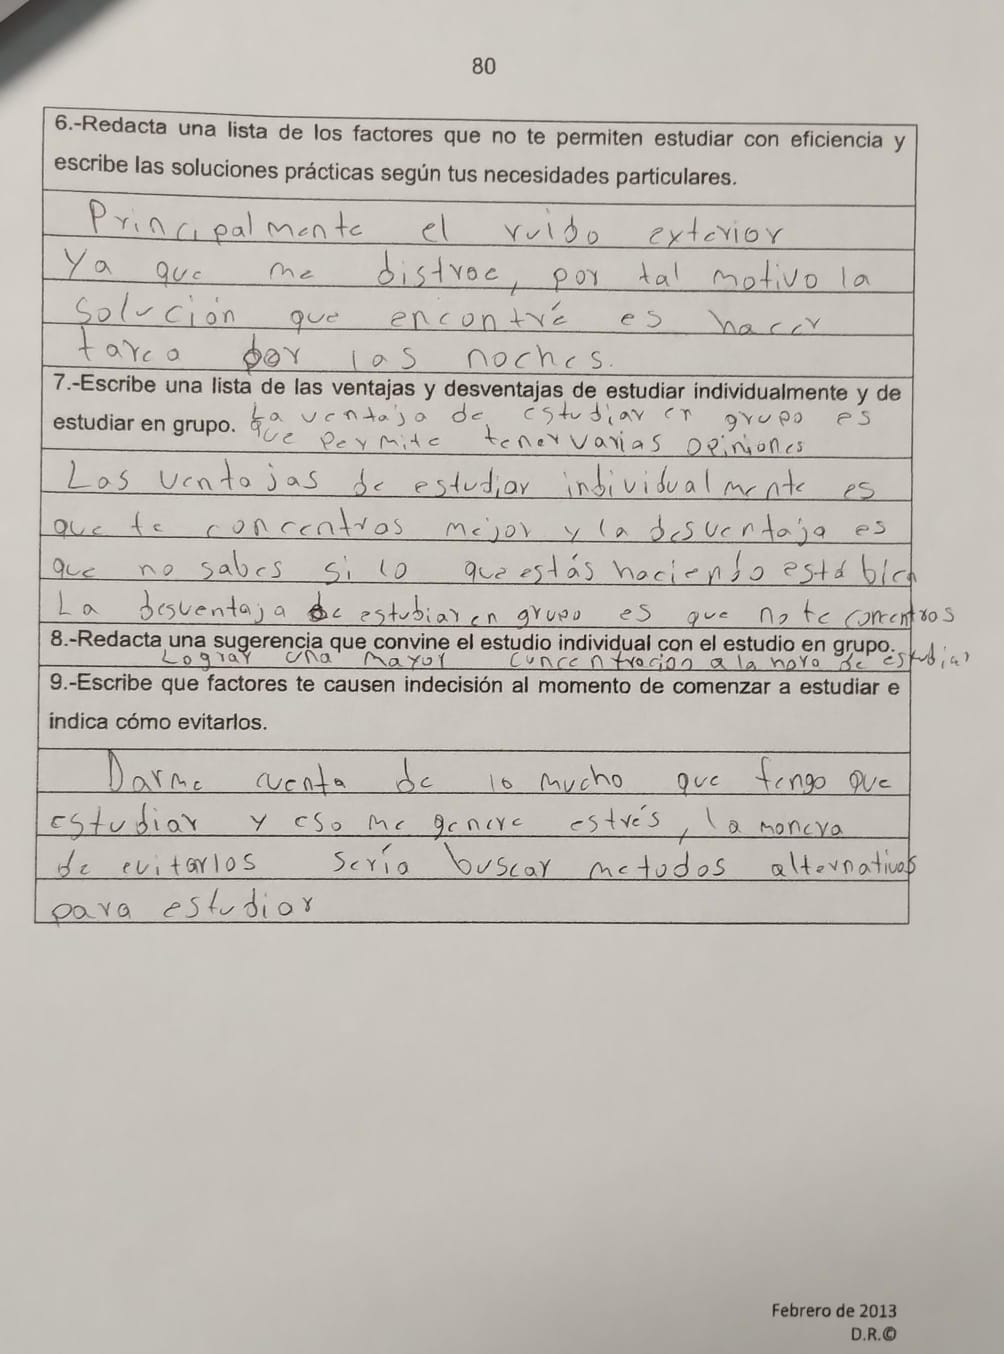 80
6.-Redacta una lista de los factores que no te permiten estudiar con eficiencia y
escribe las soluciones prácticas según tus necesidades particulares.
Principalmente el ruido exterior
Ya que me distrae, por tal motivo la
solución que encontré es hacer
tarea por las noches.
7.-Escribe una lista de las ventajas y desventajas de estudiar individualmente y de
estudiar en grupo. La ventaja de estudiar en grupo es
que permite tener varias opiniones
Las ventajas de estudiar individualmente es
que te concentras mejor y la desventaja es
que no sabes si lo que estás haciendo está bien
La desventaja de estudiar en grupo es que no te concentras
8.-Redacta una sugerencia que convine el estudio individual con el estudio en grupo.
Lograr una mayor concentración a la hora de estudiar
9.-Escribe que factores te causen indecisión al momento de comenzar a estudiar e
indica cómo evitarlos.
Darme cuenta de lo mucho que tengo que
estudiar y eso me genere estrés, la manera
de evitarlos sería buscar metodos alternativos
para estudiar
Febrero de 2013
D.R.©